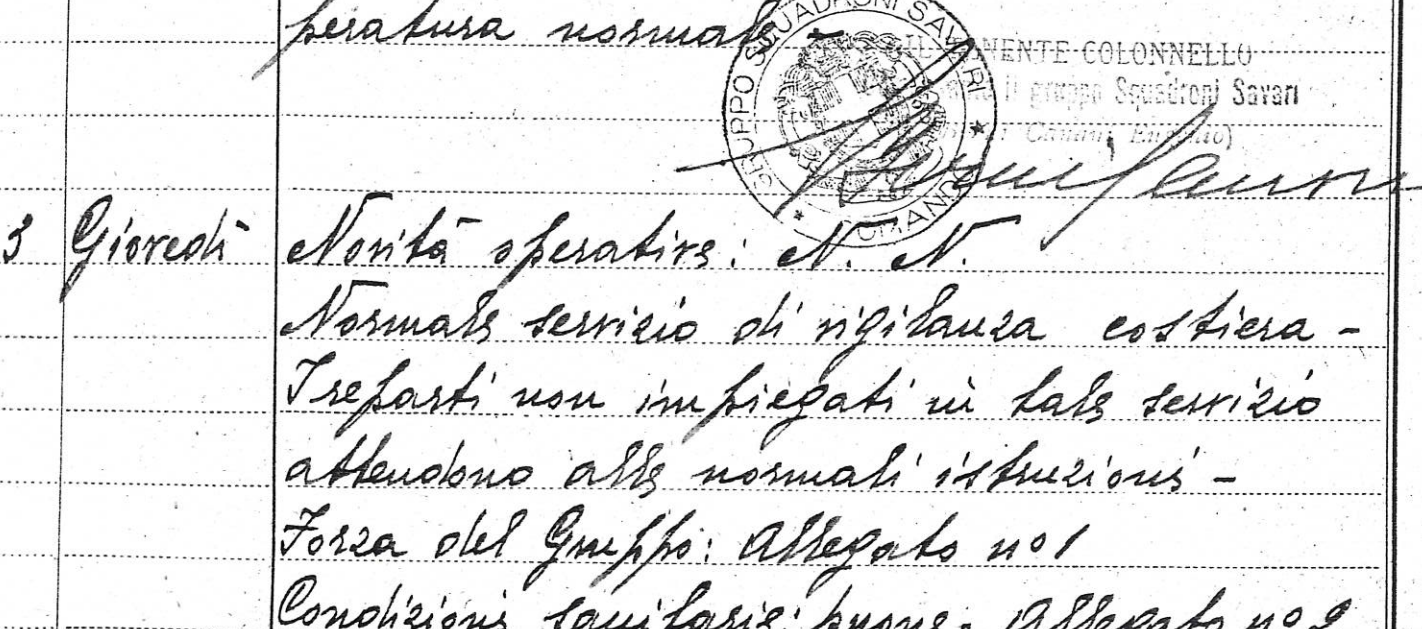 peratura normale -
GRUPPO SQUADRONI SAVARI
COMANDO
IL TENENTE COLONNELLO
il gruppo Squadroni Savari
3 Giovedì Novità operative: N. N.
Normale servizio di vigilanza costiera -
I reparti non impiegati in tale servizio
attendono alle normali istruzioni -
Forza del Gruppo: Allegato nº 1
Condizioni sanitarie: buone - Allegato nº 2